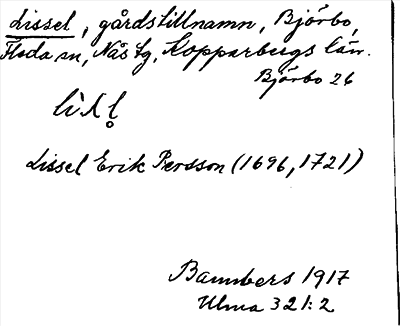 Lissel, gårdstillnamn, Björbo,
Floda sn, Nås tg, Kopparbergs län.
Björbo 26
Lissel Erik Persson (1696, 1721)
Bannbers 1917
Ulma 321:2